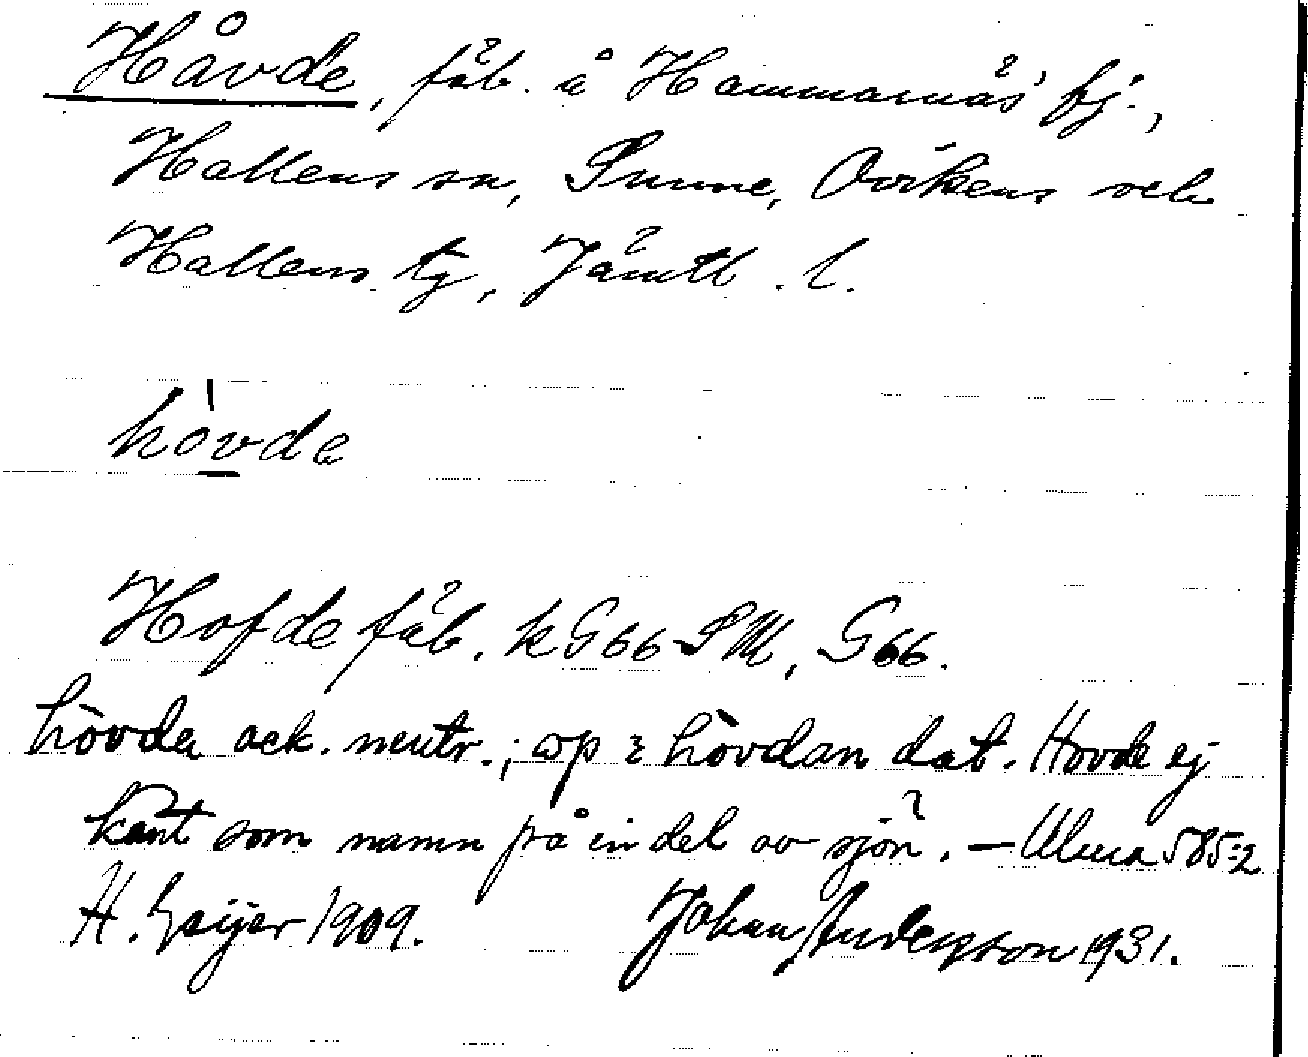 Håvde, fäb. å Hammarnäs' bj.,
Hallens sn, Sunne, Ovikens och
Hallens tg, Jämtl. l.
hòvde
Hofde fäb. kG66 SM, G66.
hòvda ack. neutr.; op : hòvdan dat. Hovde ej
känt som namn på en del av sjön. – Ulma 585:2
H. Geijer 1909. Johan Andersson 1931.